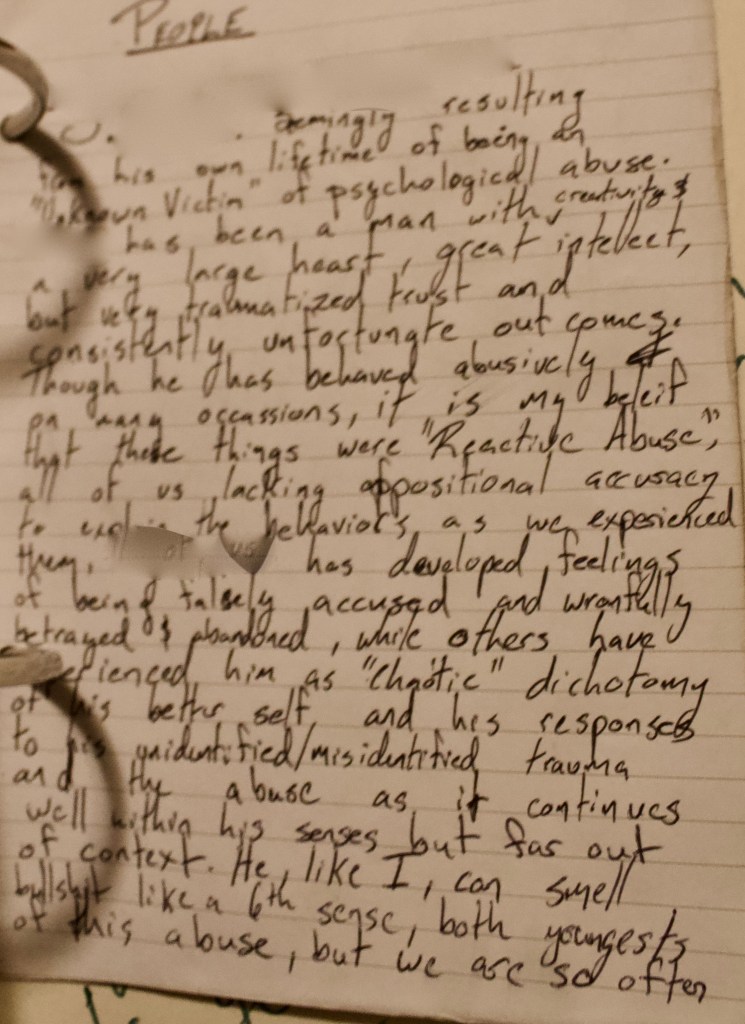 PEOPLE
resulting
his own lifetime of being an
"Unknown Victim" of psychological abuse.
has been a man with creativity &
a very large heart, great intellect,
but very traumatized trust and
consistently unfortunate outcomes.
Though he has behaved abusively
on many occassions, it is my beleif
that these things were "Reactive Abuse",
all of us lacking oppositional accuracy
to explain the behaviors as we experienced
them. has developed feelings
of being falsely accused and wrongfully
betrayed & abandoned, while others have
him as "chaotic" dichotomy
of his better self, and his responses
to his unidentified/misidentified trauma
and the abuse as it continues
well within his senses but far out
of context. He, like I, can smell
bullshit like a 6th sense, both youngests
of this abuse, but we are so often